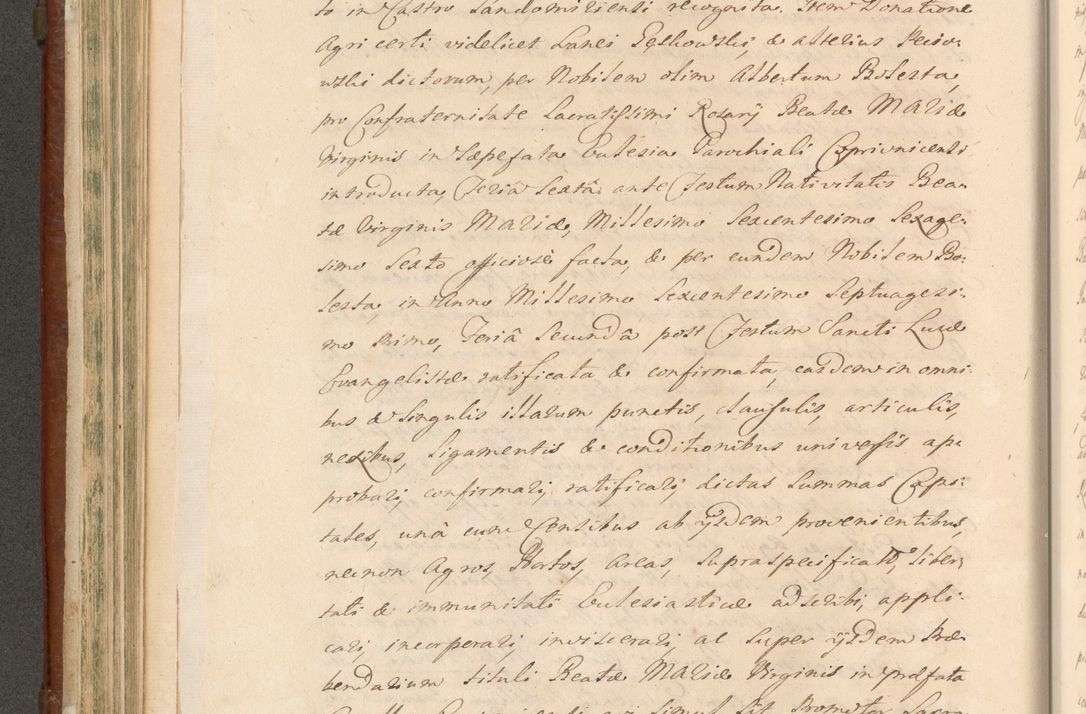 to in Castro Sandomiriensi recognita. Item Donatione
Agri certi videlicet Lanei Pękowski, & alterius
wski dictorum, per Nobilem olim Albertum Bolesta,
pro Confraternitate Sacratissimi Rosarÿ Beatæ MARIÆ
Virginis in Sæpefata Ecclesia Parochiali Coprivnicensi
introducta, Feriâ Sextâ ante Festum Nativitatis Bea-
tæ Virginis MARIÆ, Millesimo Sexcentesimo Sexage-
simo Sexto officiosè facta, & per eundem Nobilem Bo-
lesta, in Anno Millesimo Sexcentesimo Septuagesi-
mo Primo, Feriâ Secundâ post Festum Sancti Lucæ
Evangelistæ ratificata & confirmata, easdem in omni-
bus & Singulis illarum punctis, clausulis, articulis,
nexibus, Ligamentis & conditionibus universis ap-
probari, confirmari, ratificari, dictas Summas Capi-
tales, unâ cum Censibus ab ÿsdem provenientibus,
necnon Agros, Hortos, Areas, Supraspecificatos, liber-
tati & immunitati Eclesiasticæ adscribi, appli-
cari, incorporari, inviscerari, ac Super ÿsdem Præ-
bendarium tituli Beatæ MARIÆ Virginis in præfata
simul sit Promotor Sacra-